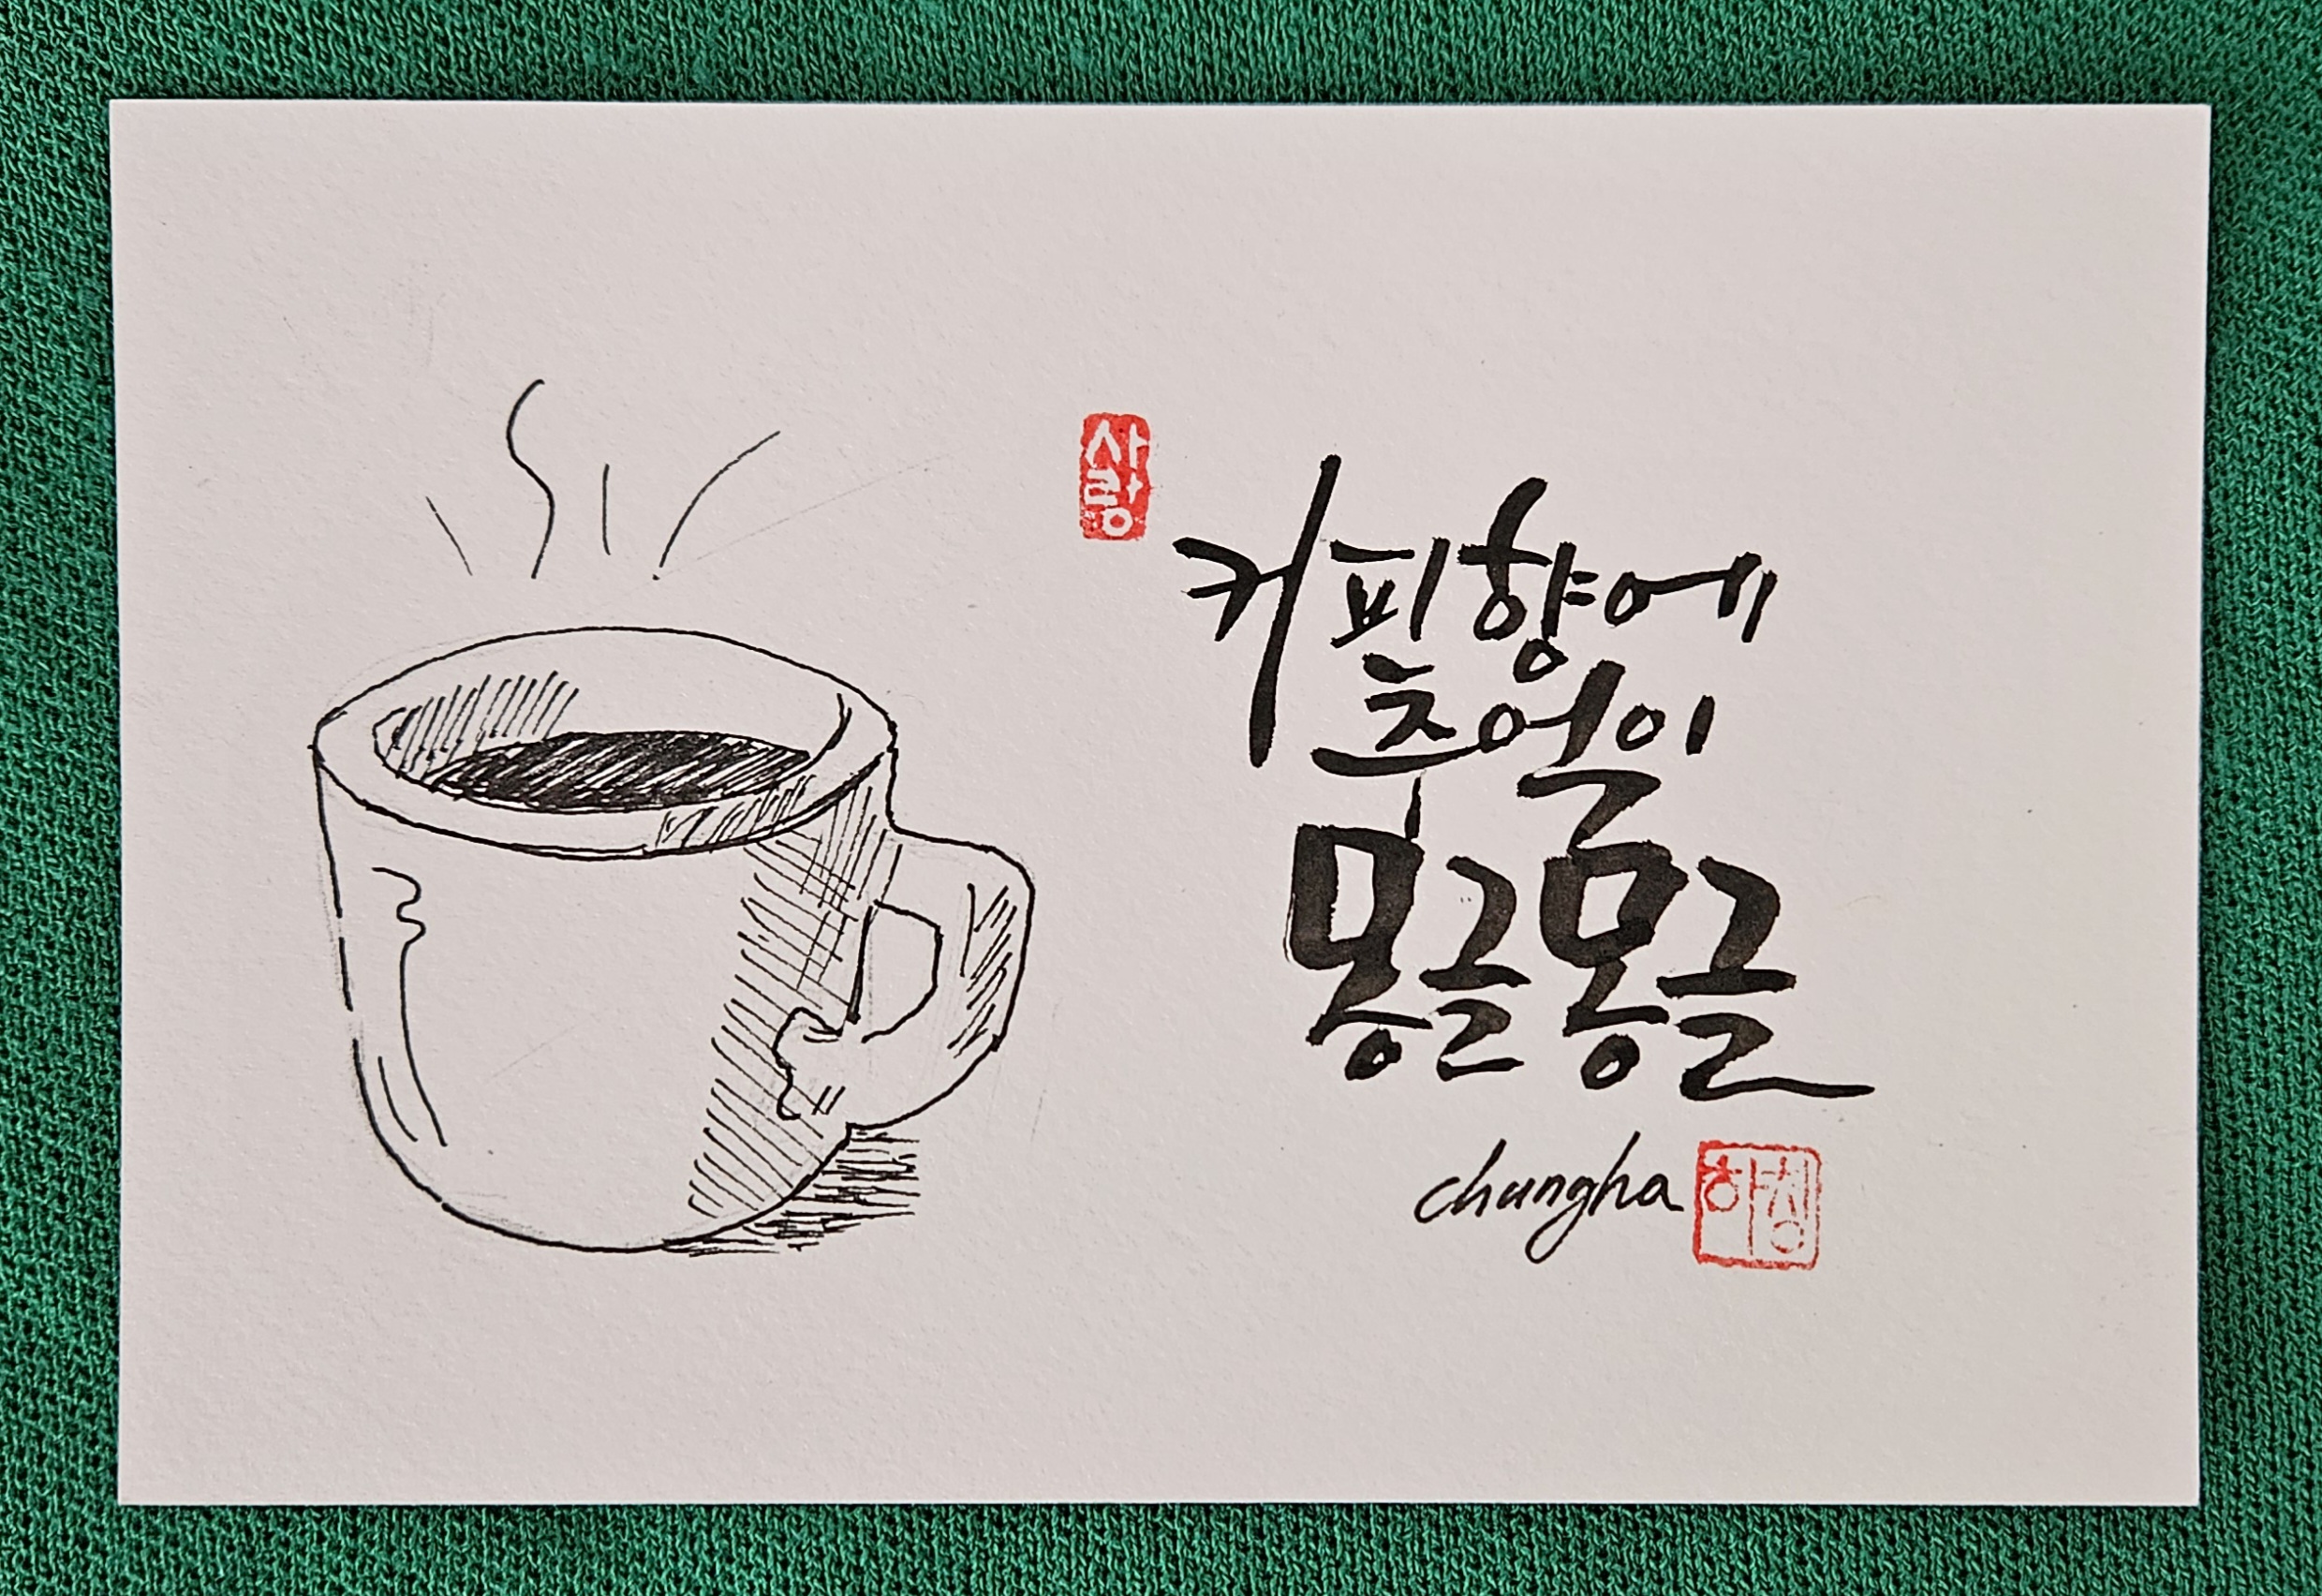 사랑
커피향에
추억이
몽글몽글
chungha
하청